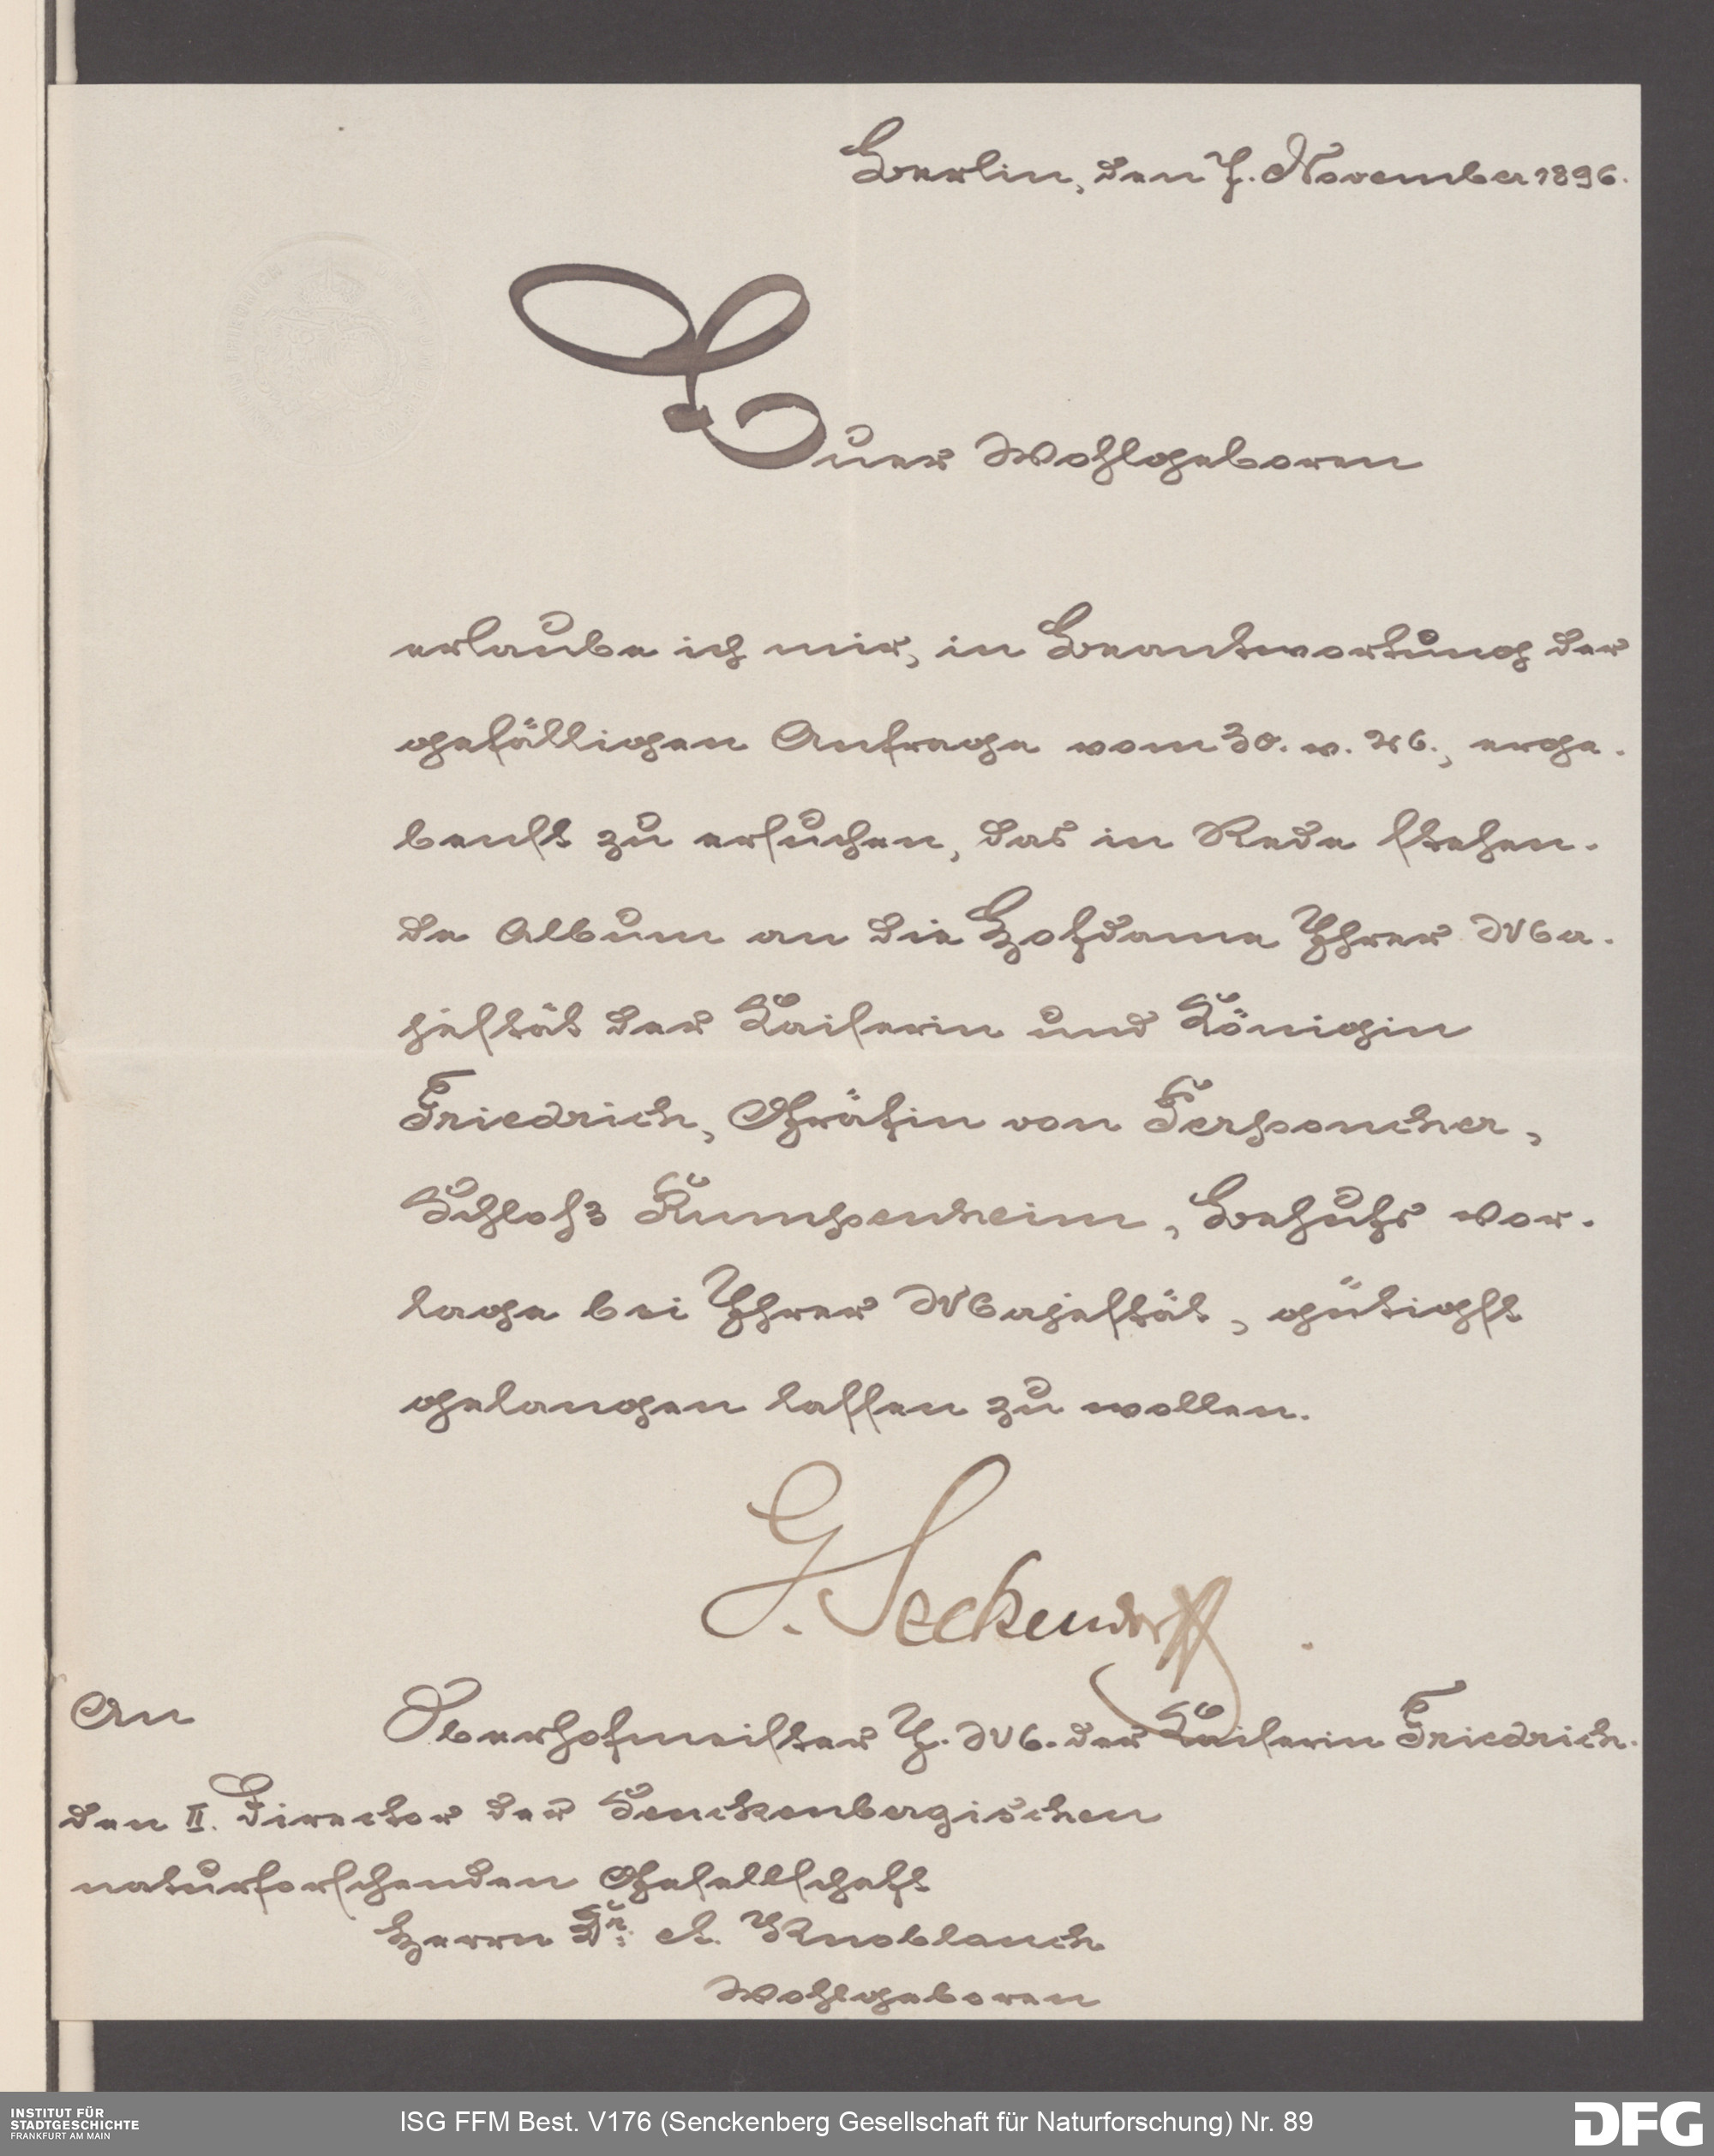 Berlin, den 7. November 1896.
Euer Wohlgeboren
erlaube ich mir, in Beantwortung der
gefälligen Anfrage vom 30. v. Mts., erge-
benst zu ersuchen, das in Rede stehen-
de Album an die Hofdame Ihrer Ma-
jestät der Kaiserin und Königin
Friedrich, Gräfin von Perponcher,
Schloß Rumpenheim, Behufs Vor-
lage bei Ihrer Majestät, gütigst
gelangen lassen zu wollen.
G. Seckendorff
Oberhofmeister I. M. der Kaiserin Friedrich.
An
den II. Director der Senckenbergischen
naturforschenden Gesellschaft
Herrn Dr. A. Knoblauch
Wohlgeboren
INSTITUT FÜR
STADTGESCHICHTE
FRANKFURT AM MAIN
ISG FFM Best. V176 (Senckenberg Gesellschaft für Naturforschung) Nr. 89
DFG